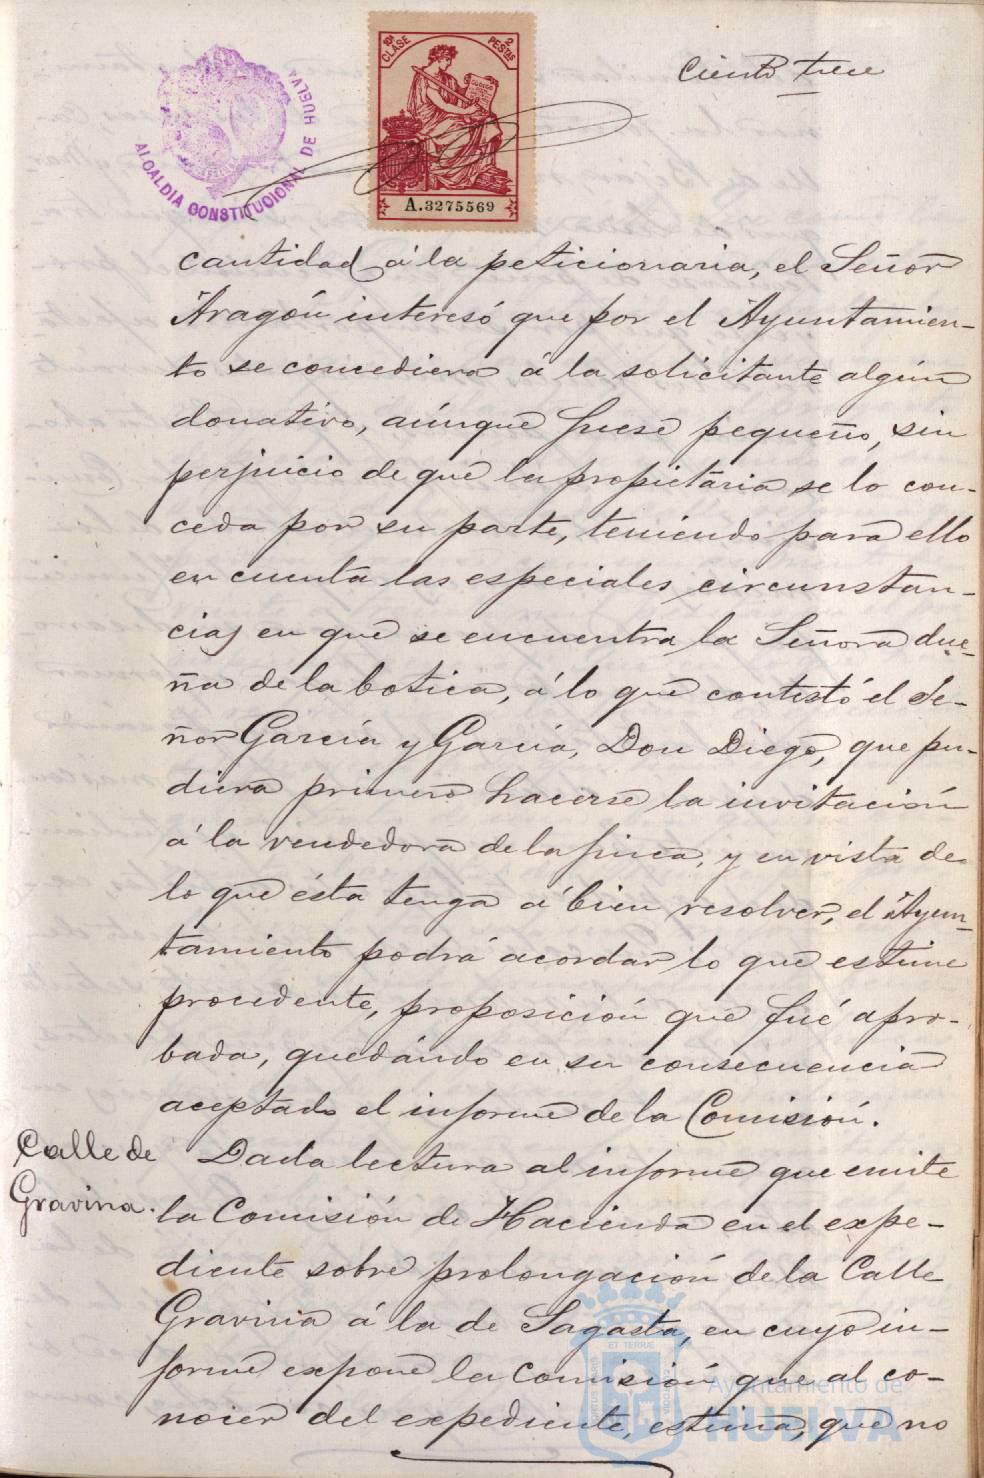 Ciento trece
ALCALDIA CONSTITUCIONAL DE HUELVA
10ª CLASE 2 PESTAS
A.3275569
cantidad á la peticionaria, el Señor
Aragón interesó que por el Ayuntamien-
to se concediera á la solicitante algún
donativo, aúnque fuese pequeño, sin
perjuicio de que la propietaria se lo con-
ceda por su parte, teniendo para ello
en cuenta las especiales circunstan-
cias en que se encuentra la Señora due-
ña de la botica, á lo que contestó el Se-
ñor García y García, Don Diego, que pu-
diera primero hacerse la invitación
á la vendedora de la finca, y en vista de
lo que ésta tenga á bien resolver, el Ayun-
tamiento podrá acordar lo que estime
procedente, proposición que fué apro-
bada, quedándo en su consecuencia
aceptado el informe de la Comisión.
Calle de
Gravina.
Dada lectura al informe que emite
la Comisión de Hacienda en el expe-
diente sobre prolongación de la Calle
Gravina á la de Sagasta, en cuyo in-
forme expone la Comisión que al co-
nocer del expediente, estima, que no
Ayuntamiento de
HUELVA